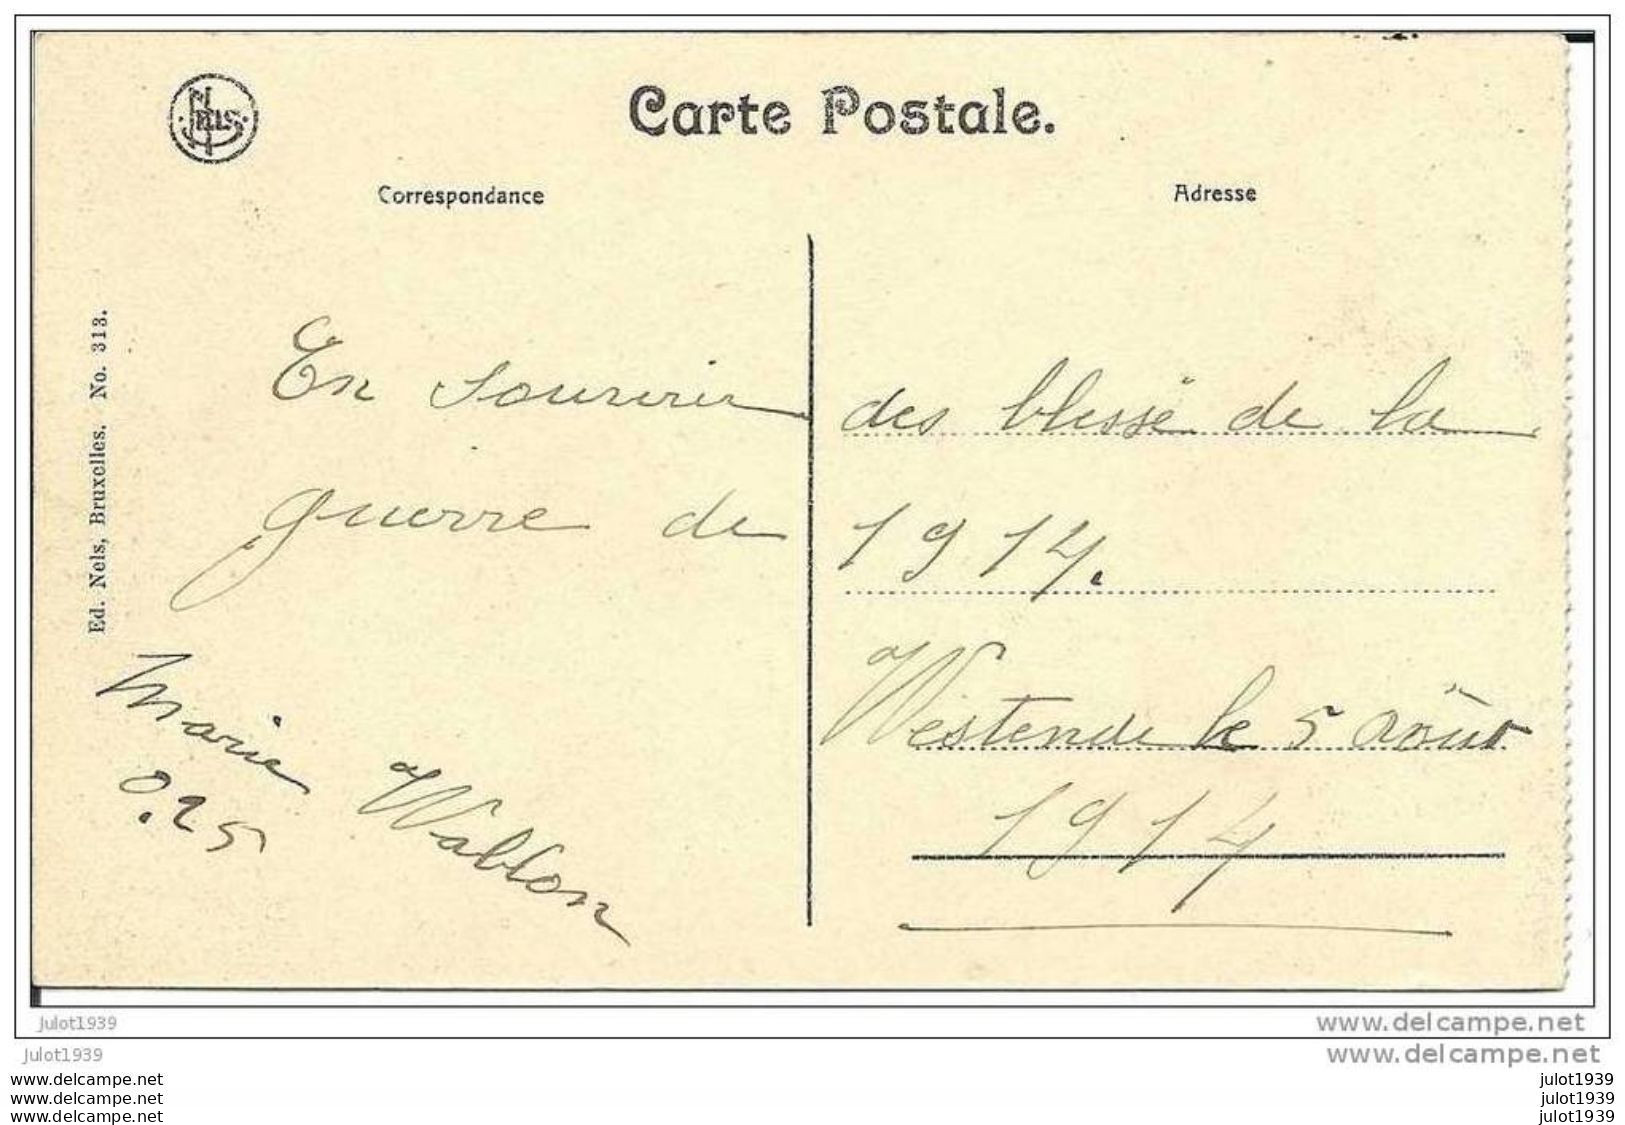 Nels
Carte Postale.
Correspondance
Adresse
Ed. Nels, Bruxelles. No. 313.
En souvenir des blessé de la
guerre de 1914.
Westende le 5 Août
1914
Marie Wablon
0.25
julot1939
www.delcampe.net
julot1939
www.delcampe.net
www.delcampe.net
julot1939
www.delcampe.net
julot1939
www.delcampe.net
julot1939